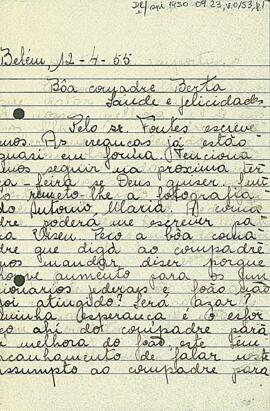 Belém, 12-4-55
Bôa comadre Berta
Saude e felicidades
Pelo sr. Fontes escreve
mos. As meninas já estão
quasi em forma. Tenciona
mos seguir na proxima ter
ça-feira se Deus quiser. Jun
to remeto-lhe a fotografia
do Antonio Maria. A coma
dre poderá me escrever pa
Viseu. Peço a boa coma
dre que diga ao compadre
nos mandar diser porque
houve aumento para os fun
cionários federais e João não
foi atingido? Será azar?
minha esperança é o esfor
ço ahi do compadre para
a melhora do João, este tem
acanhamento de falar neste
assumpto ao compadre para